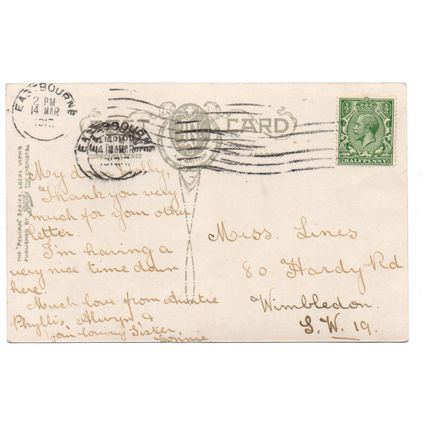 EASTBOURNE
2 PM
14 MAR
1917
EASTBOURNE
14 MAR
POST CARD
HALFPENNY
THE "PESHKA" SERIES. LOCAL VIEWS
PUBLISHED BY
My d
Thank you very
much for your other
letter.
I'm having a
very nice time down
here.
Much love from Auntie
Phyllis, Alwyn &
your loving Sister.
Connie
Miss Lines
80 Hardy Rd
Wimbledon.
S.W. 19.